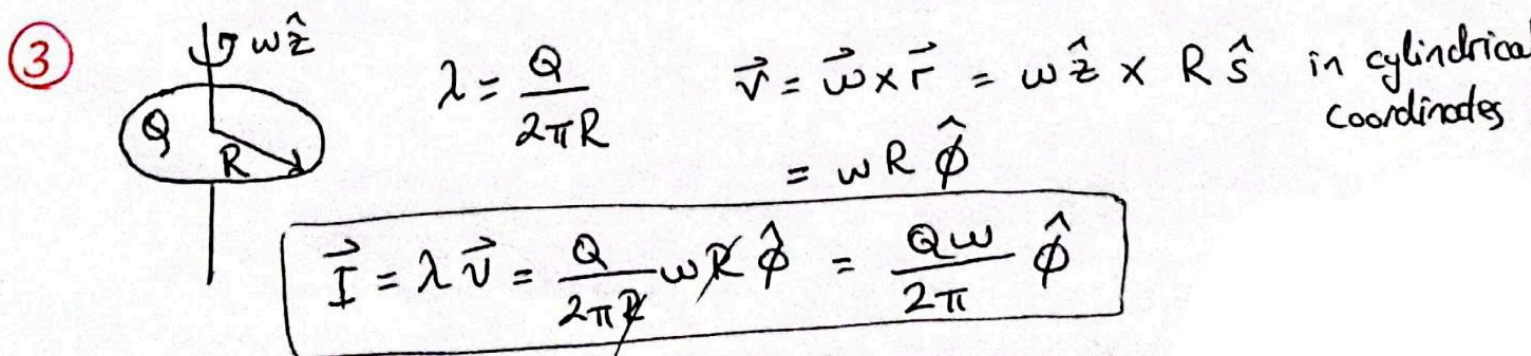 ③
ωẑ
Q
R
λ = Q / 2πR
v⃗ = ω⃗ × r⃗ = ωẑ × R ŝ in cylindrical
coordinodes
= ωR φ̂
I⃗ = λv⃗ = Q / 2πR ωR φ̂ = Qω / 2π φ̂